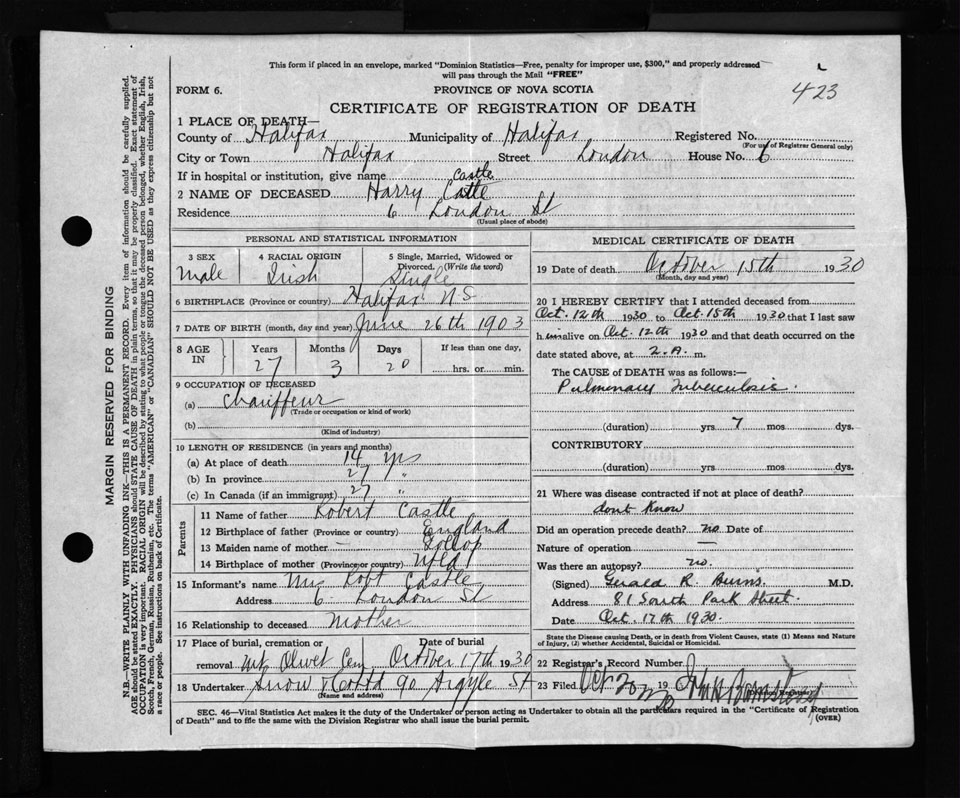 This form if placed in an envelope, marked "Dominion Statistics—Free, penalty for improper use, $300," and properly addressed
will pass through the Mail "FREE"
FORM 6. PROVINCE OF NOVA SCOTIA 423
CERTIFICATE OF REGISTRATION OF DEATH
1 PLACE OF DEATH—
County of Halifax Municipality of Halifax Registered No.
(For use of Registrar General only)
City or Town Halifax Street London House No. 6
If in hospital or institution, give name
Castle
2 NAME OF DECEASED Harry Catle
Residence 6 London St
(Usual place of abode)
PERSONAL AND STATISTICAL INFORMATION
3 SEX 4 RACIAL ORIGIN 5 Single, Married, Widowed or
Divorced. (Write the word)
Male Irish Single
6 BIRTHPLACE (Province or country) Halifax N S
7 DATE OF BIRTH (month, day and year) June 26th 1903
8 AGE IN Years Months Days If less than one day,
27 3 20 hrs. or min.
9 OCCUPATION OF DECEASED
(a) Chauffeur
(Trade or occupation or kind of work)
(b)
(Kind of industry)
10 LENGTH OF RESIDENCE (in years and months)
(a) At place of death 14 yrs
(b) In province 27 "
(c) In Canada (if an immigrant) 27 "
Parents
11 Name of father Robert Castle
12 Birthplace of father (Province or country) England
13 Maiden name of mother
14 Birthplace of mother (Province or country) Nfld
15 Informant's name Mrs Robt Castle
Address 6 London St
16 Relationship to deceased Mother
17 Place of burial, cremation or Date of burial
removal Mt Olivet Cem October 17th 1930
18 Undertaker Snow & Co Ltd 90 Argyle St
(Name and address)
MEDICAL CERTIFICATE OF DEATH
19 Date of death October 15th 1930
(Month, day and year)
20 I HEREBY CERTIFY that I attended deceased from
Oct. 12th 1930 to Oct. 15th 1930 that I last saw
h im alive on Oct. 12th 1930 and that death occurred on the
date stated above, at 2. A. m.
The CAUSE of DEATH was as follows:—
Pulmonary Tuberculosis.
(duration) yrs 7 mos dys.
CONTRIBUTORY
(duration) yrs. mos. dys.
21 Where was disease contracted if not at place of death?
dont know
Did an operation precede death? no Date of
Nature of operation —
Was there an autopsy? no.
(Signed) Gerald R. Burns. M.D.
Address 81 South Park Street.
Date Oct. 17th 1930.
State the Disease causing Death, or in death from Violent Causes, state (1) Means and Nature
of Injury, (2) whether Accidental, Suicidal or Homicidal.
22 Registrar's Record Number
23 Filed Oct 20 19
SEC. 46—Vital Statistics Act makes it the duty of the Undertaker or person acting as Undertaker to obtain all the particulars required in the "Certificate of Registration
of Death" and to file the same with the Division Registrar who shall issue the burial permit.
(OVER)
MARGIN RESERVED FOR BINDING
N.B.—WRITE PLAINLY WITH UNFADING INK—THIS IS A PERMANENT RECORD. Every item of information should be carefully supplied.
AGE should be stated EXACTLY. PHYSICIANS should STATE CAUSE OF DEATH in plain terms, so that it may be properly classified. Exact statement of
OCCUPATION is very important. RACIAL ORIGIN will be described by stating to what people or tongue the deceased person belonged, whether English, Irish,
Scotch, French, German, Russian, Ruthenian, etc. The terms "AMERICAN" or "CANADIAN" SHOULD NOT BE USED as they express citizenship but not
a race or people. See instructions on back of Certificate.